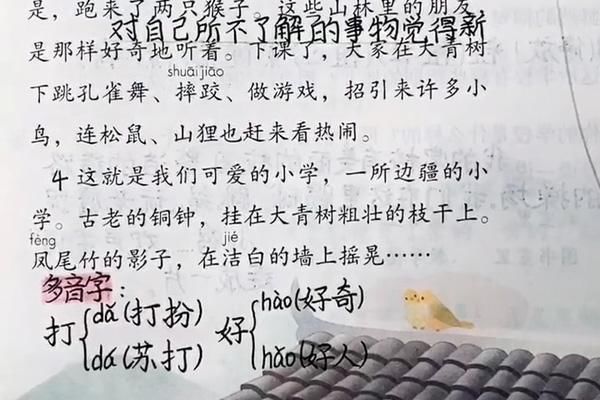 是，跑来了两只猴子。这些山林里的朋友，
对自己所不了解的事物觉得新
是那样好奇地听着。下课了，大家在大青树
shuāi jiāo
下跳孔雀舞、摔跤、做游戏，招引来许多小
鸟，连松鼠、山狸也赶来看热闹。
4 这就是我们可爱的小学，一所边疆的小
学。古老的铜钟，挂在大青树粗壮的枝干上。
fèng jié
凤尾竹的影子，在洁白的墙上摇晃……
多音字：
打 dǎ(打扮) 好 hào(好奇)
dá(苏打) hǎo(好人)